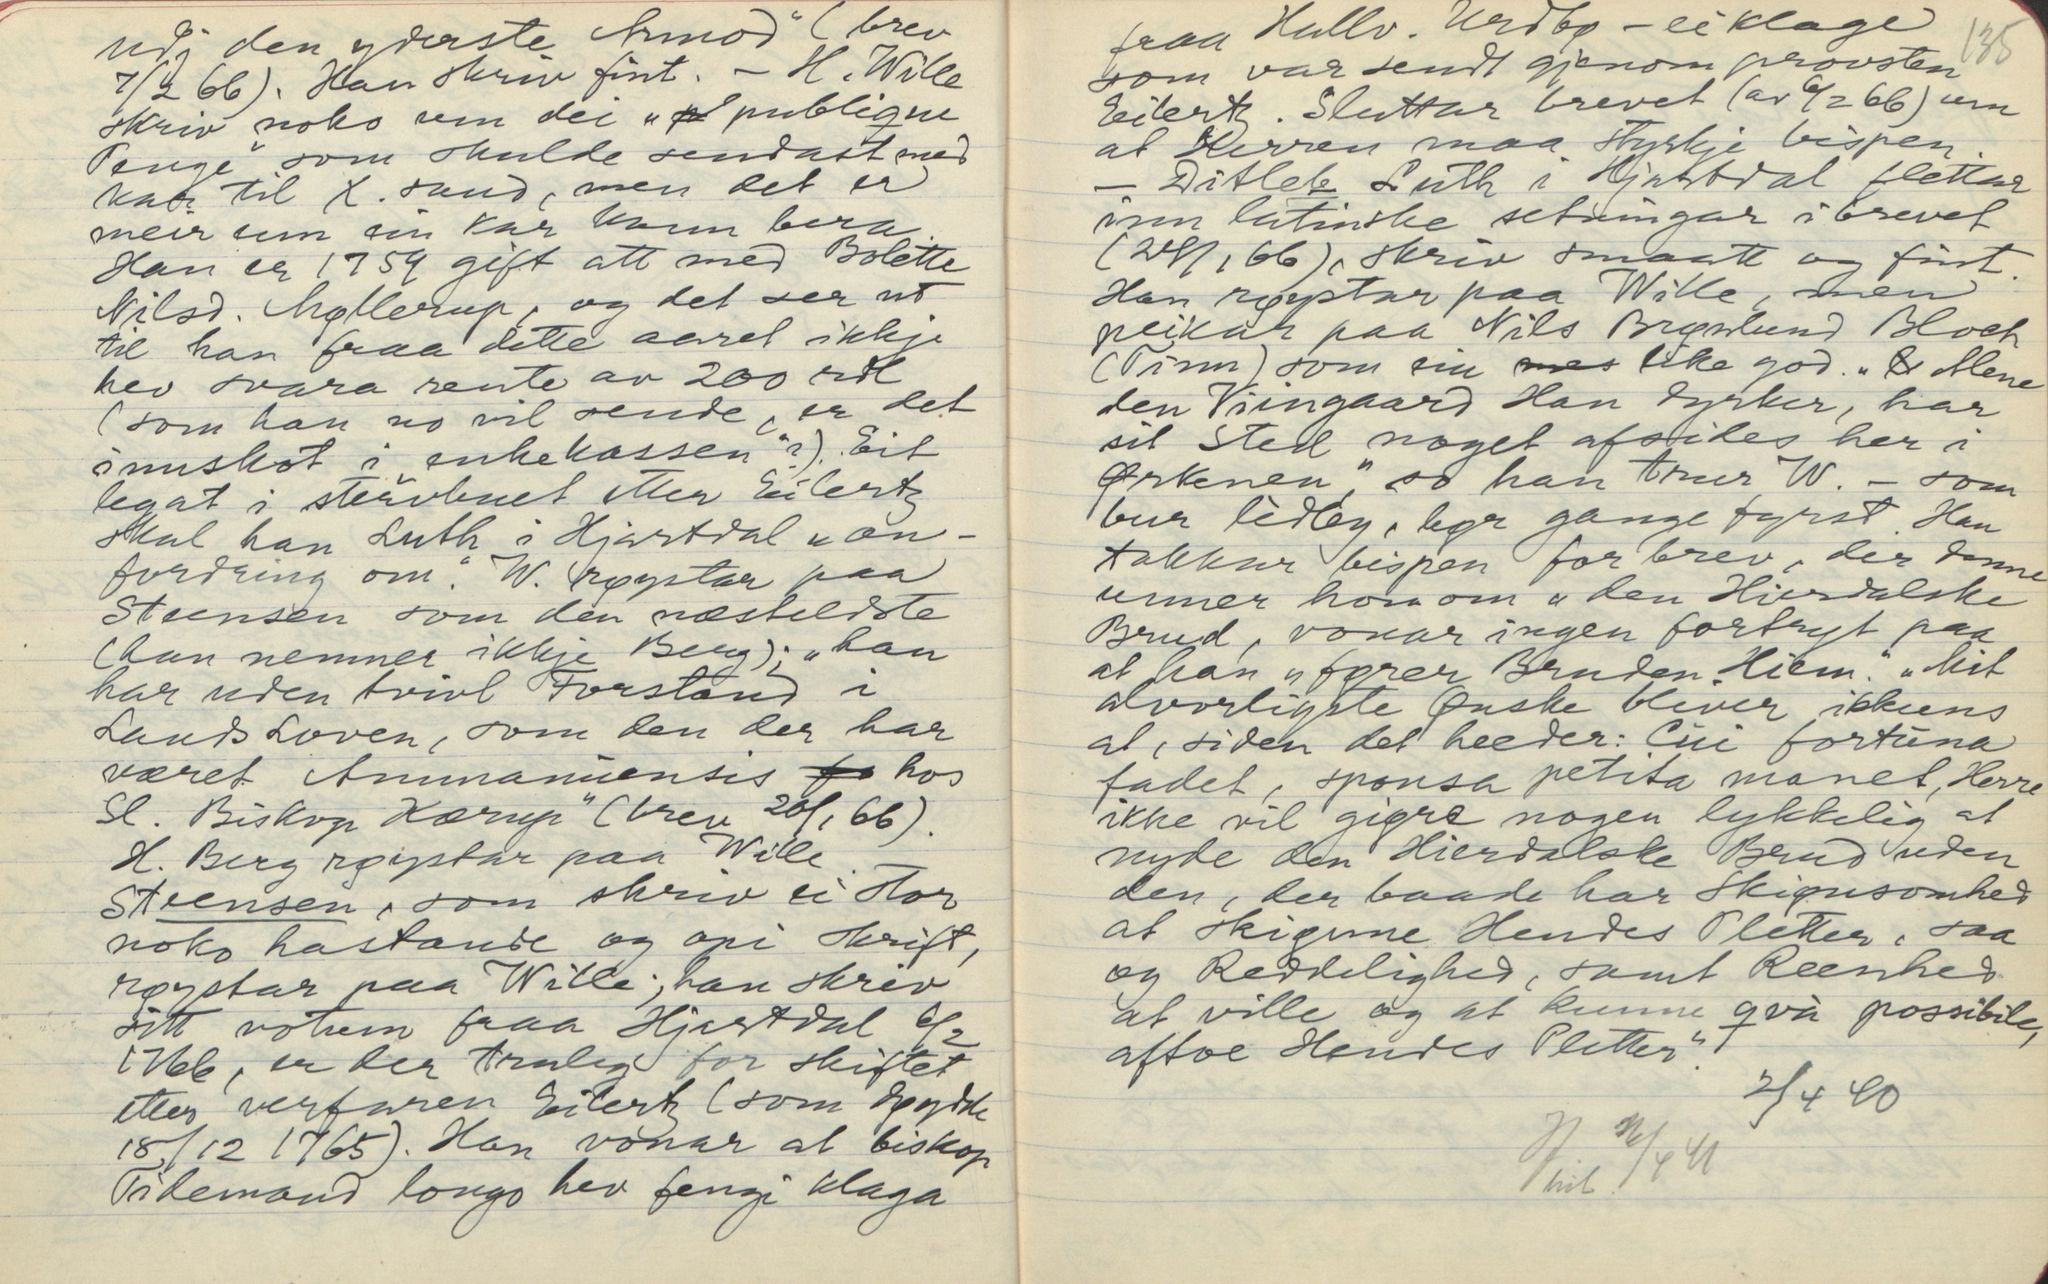 udj den yderste Armod" (brev
7/2 66). Han skriv fint. – H. Wille
skriv noko um dei „publique
Penge" som skulde sendast med
kar til X.sand, men det er
meir um ein kar kann bera.
Han er 1759 gift att med Bolette
Nilsd. Møllerup, og det ser ut
til han fraa dette aaret ikkje
hev svara rente av 200 rdl
(som han no vil sende, er det
innskot i „enkekassen"?). Eit
legat i stervbuet etter Eilertz
skal han Luth i Hjartdal „an-
fordring om." W. røystar paa
Steensen som den næsteldste
(han nemner ikkje Berg); „han
har uden tvivl Forstand i
Lands Loven, som den der har
været Ammanuensis hos
Sl. Biskop Kærup" (brev 20/1 66).
H. Berg røystar paa Wille.
Steensen, som skriv ei stor
noko hastande og opi skrift,
røystar paa Wille; han skriv
sitt votum fraa Hjartdal 6/2
1766, er der truleg for skiftet
etter verfaren Eilertz (som døydde
18/12 1765). Han vonar at biskop
Tidemand longo hev fengi klaga
135
fraa Hallv. Urdbø – ei klage
som var sendt gjenom provsten
Eilertz. Sluttar brevet (av 6/2 66) um
at Herren maa styrkje bispen.
– Ditleb Luth i Hjartdal flettar
inn latinske setningar i brevet
(28/1 66), skriv smaatt og fint.
Han røystar paa Wille, men
peikar paa Nils Brønlund Bloch
(Tinn) som ein like god. „Mene
den Viingaard Han dyrker, har
sit Sted noget afsides her i
Ørkenen," so han trur W. – som
bur lidleg, bør gange fyrst. Han
takkar bispen for brev, der denne
unner honom „den Hierdalske
Brud, vonar ingen fortryt paa
at han „fører Bruden Hiem." „Mit
alvorligste Ønske bliver ikkuns
at, siden det heeder: Cui fortuna
fadet, sponsa petita manet, Herre
ikke vil giøre nogen lykkelig at
nyde den Hierdalske Brud uden
den, der baade har Skiønsomhed
at skiønne Hendes Pletter, saa
og Reddelighed, samt Reenhed
at ville og at kunne qvà possibile,
aftoe Hendes Pletter".
2/4 40